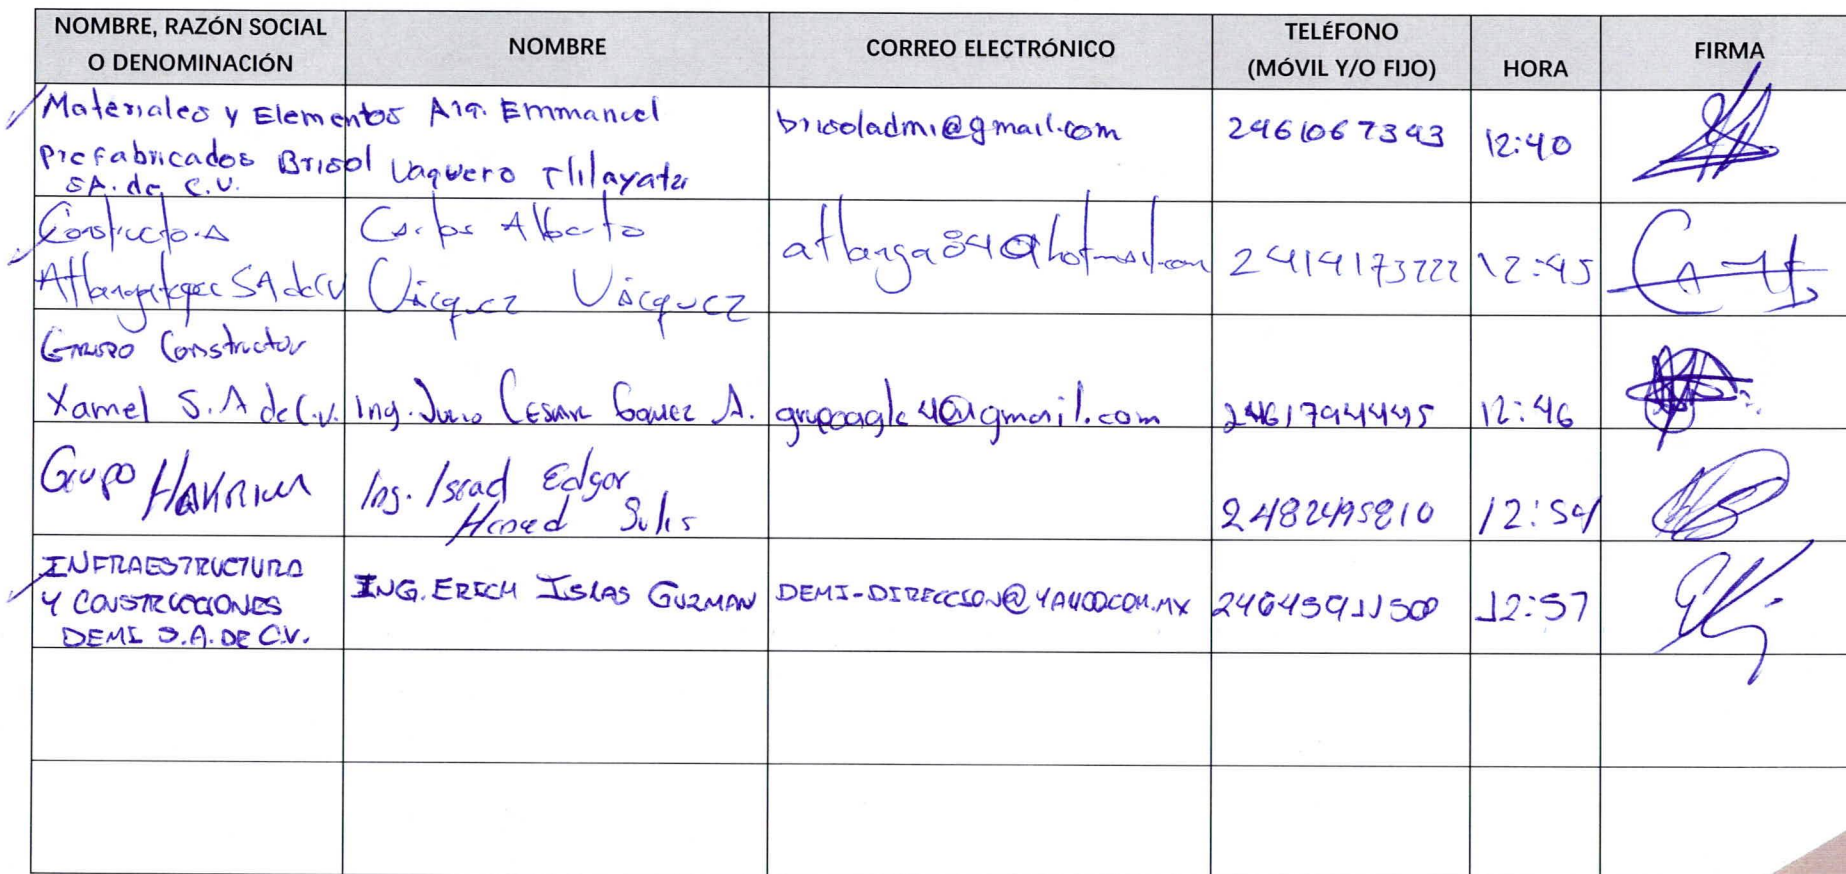 NOMBRE, RAZÓN SOCIAL
O DENOMINACIÓN
NOMBRE
CORREO ELECTRÓNICO
TELÉFONO
(MÓVIL Y/O FIJO)
HORA
FIRMA
Materiales y Elementos
Prefabricados Brisol
SA. de C.V.
Arq. Emmanuel
Vaquero Tlilayatzi
brisoladmi@gmail.com
2461067343
12:40
Constructora
Atlangatepec SA de CV
Carlos Alberto
Vázquez Vázquez
atlanga84@hotmail.com
2414173222
12:45
Grupo Constructor
Xamel S.A de C.V.
Ing. Julio Cesar Gomez A.
12:46
Grupo
Ing. Israel Edgar
Solis
2482495810
12:54
INFRAESTRUCTURA
Y CONSTRUCCIONES
DEMI S.A. DE C.V.
ING. ERICH ISLAS GUZMAN
DEMI-DIRECCION@YAHOO.COM.MX
12:57